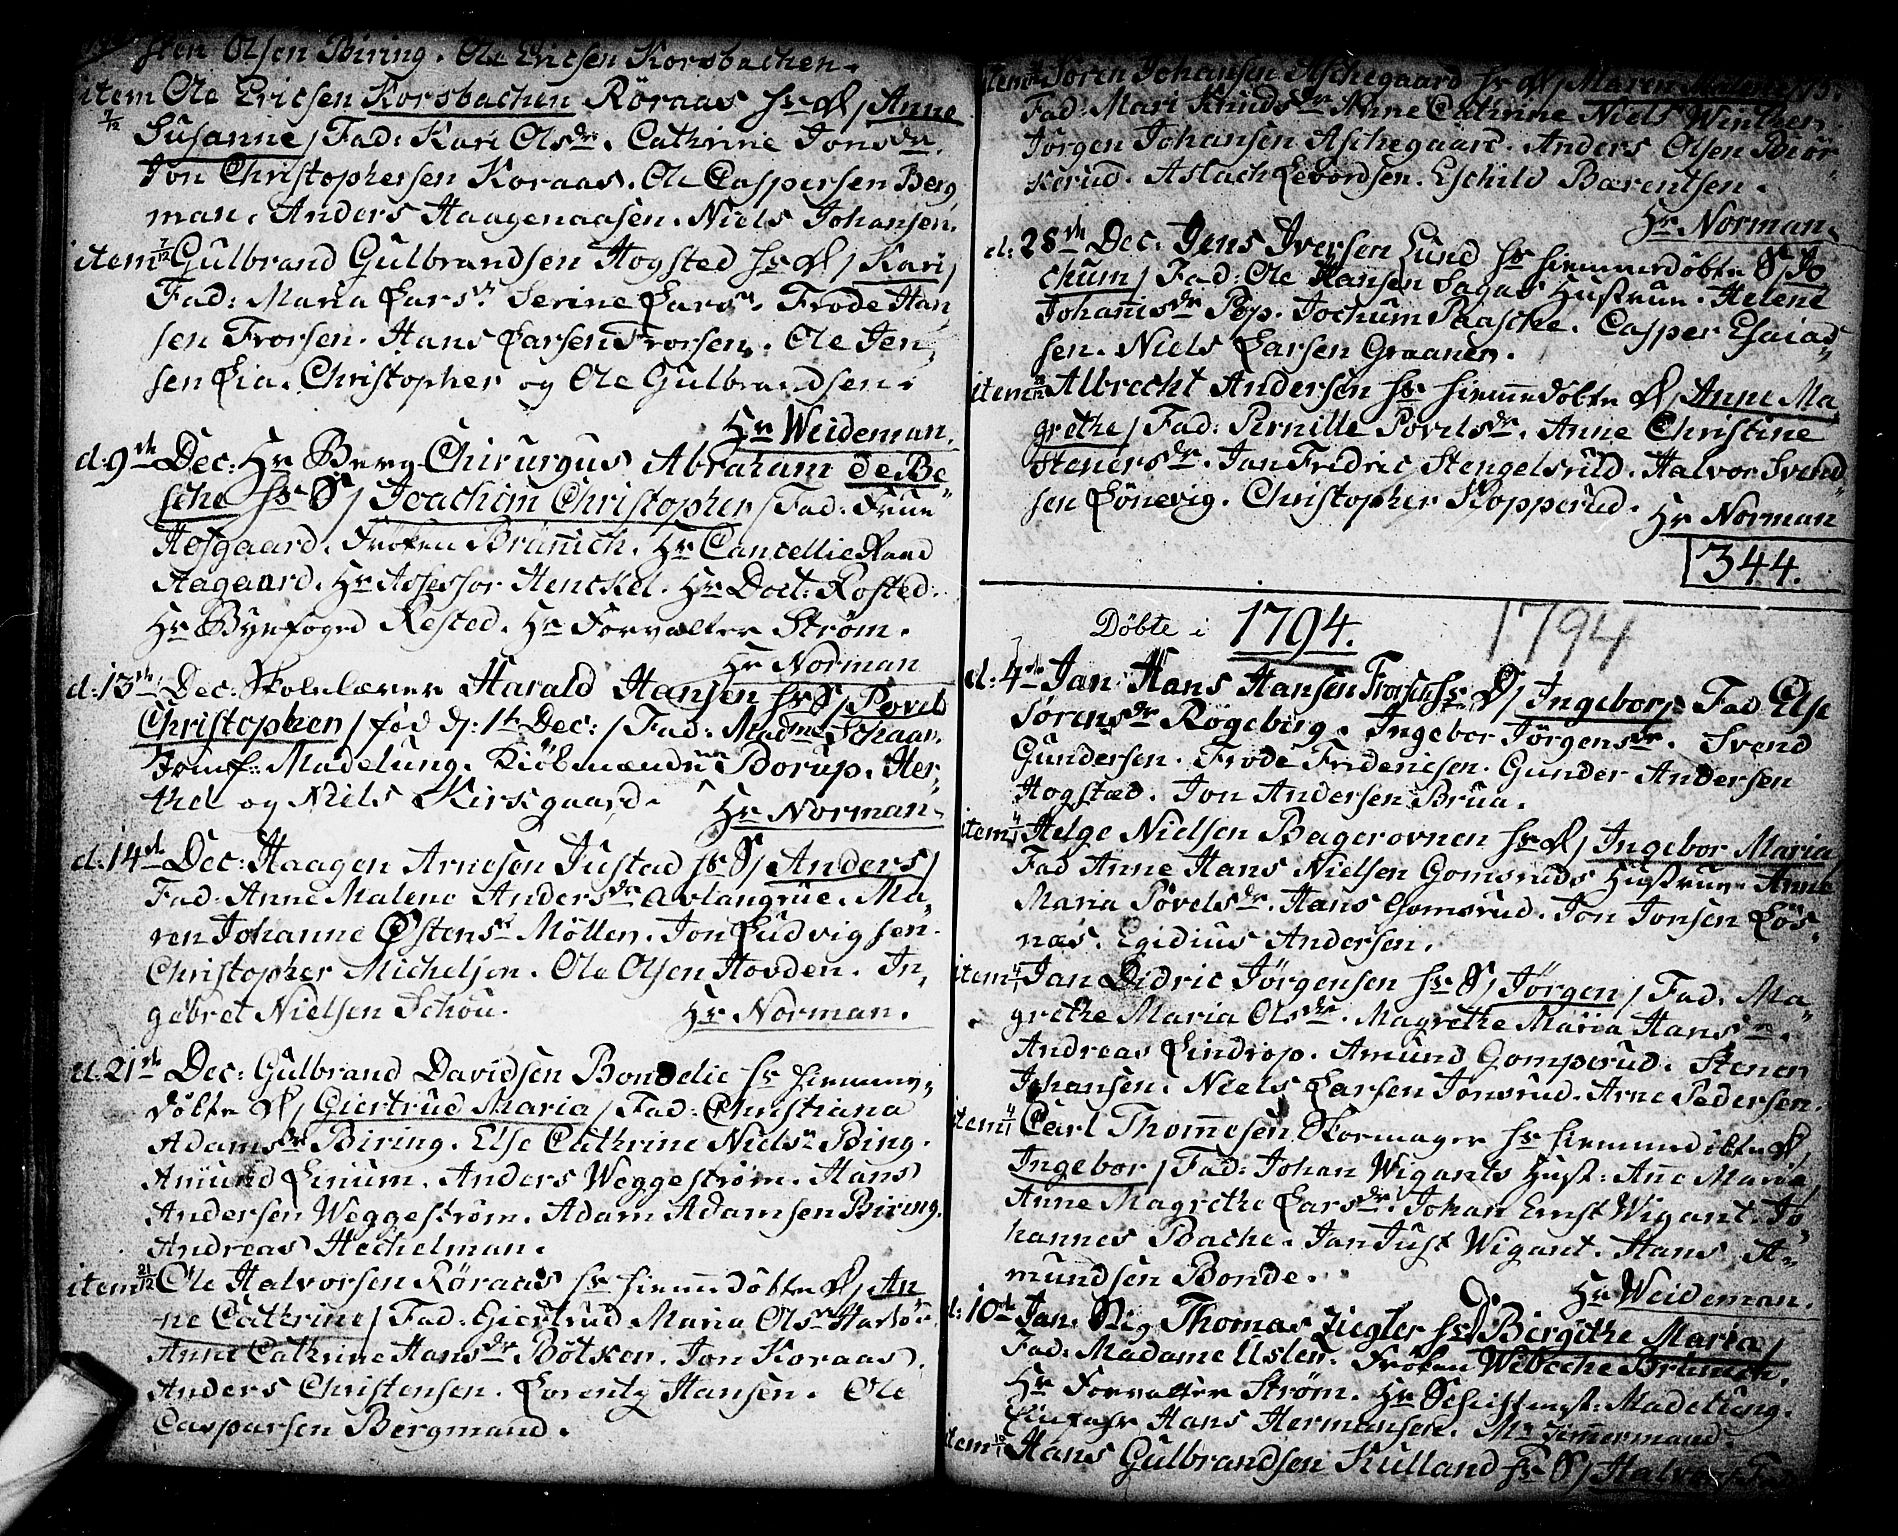 sten Olsen Biring. Ole Ericsen Korsbachen.
item Ole Ericsen Korsbachen Röraas hs D/ Anne
7/12 Susanne/ Fad: Kari Olsdr. Cathrine Jonsdr.
Jon Christophersen Koraas. Ole Caspersen Berg,
man. Anders Haagenaasen. Niels Johansen.
item 7/12 Gulbrand Gulbrandsen Hogsted hs D/ Kari/
Fad: Maria Larsdr Serine Larsdr. Frode Han,
sen Frorsen. Hans Larsen Frorsen. Ole Jen,
sen Lia. Christopher og Ole Gulbrandsen.
Hr Weideman.
d: 9de Dec: Hr Berg Chirurgus Abraham de Be,
sche hs S/ Joachim Christopher/ Fad: Frue
Hofgaard. Fröken Brünnich. Hr Cancellie Raad
Aagaard. Hr Assessor Henckel. Hr Doct: Rosted.
Hr Byefoged Rosted. Hr Forvalter Ström.
Hr Norman
d: 13de Dec: Skolelærer Harald Hansen hs S/ Povel
Christopher/ fød d: 1te Dec:/ Fad: Madme Schaar.
Jomf: Madelung. Kiöbmændene Borup. Her,
the og Niels Kirsgaard.
Hr Norman.
d: 14de Dec: Haagen Arnesen Justad hs S/ Anders/
Fad: Anne Malene Andersdr Avlangrue. Ma,
ren Johanne Østensdr Möller. Jon Ludvigsen.
Christopher Michelsen. Ole Olsen Hovden. In,
gebret Nielsen Schou. Hr Norman.
d: 21de Dec: Gulbrand Davidsen Bondelie hs hiemme,
döbte D/ Giertrud Maria/ Fad: Christiana
Adamsdr Biring. Else Cathrine Nielsdr Bing.
Amund Linum. Anders Weggeström. Hans
Andersen Weggeström. Adam Adamsen Biring.
Andreas Hechelman.
item 21/12 Ole Halvorsen Röraas hs hiemmedöbte D/ An,
ne Cathrine/ Fad: Giertrud Maria Olsdr
Anne Cathrine Hansdr Bötker. Jon Koraas.
Anders Christensen. Lorentz Hansen. Ole
Casparsen Bergmand.
item Sören Johansen Aschegaard hs D/ Maren Malene/
Fad: Mari Knudsdr Anne Cathrine Niels Winther.
Jörgen Johansen Aschegaard. Anders Olsen Biör,
kerud. Aslach Levordsen. Eschild Bærentsen.
Hr Norman.
d: 28de Dec: Jens Iversen Lund hs hiemmedöbte S/ Jo
chum/ Fad: Ole Hansen Sagas Hustrue. Helene
Johanisdr Pop. Jochum Paaske. Casper Esaias,
sen. Niels Larsen Graaner.
item 28/12 Albrecht Andersen hs hiemmedöbte D/ Anne Ma,
grethe/ Fad: Pernille Povelsdr. Anne Christine
Stenersdr. Jan Fredric Stengelsrud. Halvor Svend,
sen Lönevig. Christopher Kopperud.
Hr Norman
344.
Döbte i 1794. 1794
d: 4de Jan: Hans Hansen Frorsen hs D/ Ingebor/ Fad Else
Sörensdr Rögeberg. Ingebor Jörgensdr. Svend
Gundersen. Frode Fredericsen. Gunder Andersen
Hogstæd. Jon Andersen Brua.
item 4/1 Helge Nielsen Bagerovnen hs D/ Ingebor Maria/
Fad Anne Hans Nielsen Gomsruds Hustrue. Anne
Maria Povelsdr. Hans Gomsrud. Jon Jonsen Lös,
næs. Egidius Andersen.
item 4/1 Jan Didric Jörgensen hs S/ Jörgen/ Fad: Ma,
grethe Maria Olsdr. Magrethe Maria Hansdr.
Andreas Lindrop. Amund Gomperud. Stener
Johansen. Niels Larsen Jonsrud. Arne Pedersen.
item 4/1 Carl Thommesen Skomager hs hiemmedöbte D/
Ingebor/ Fad: Johan Wigants Hust: Anne Maria.
Anne Magrethe Larsdr. Johan Ernst Wigant. Jo,
hannes Bache. Jan Just Wigant. Hans A,
mundsen Bonde.
Hr Weideman.
d: 10de Jan: Sig Thomas Ziegler hs D/ Birgithe Maria/
Fad: Madame Uslen. Fröken Wibecke Brünnich.
Hr Forvalter Ström. Hr Madelung.
Hans Hermansen. Mr Timmermand.
item 10/1 Hans Gulbrandsen Kulland hs S/ Halvor/